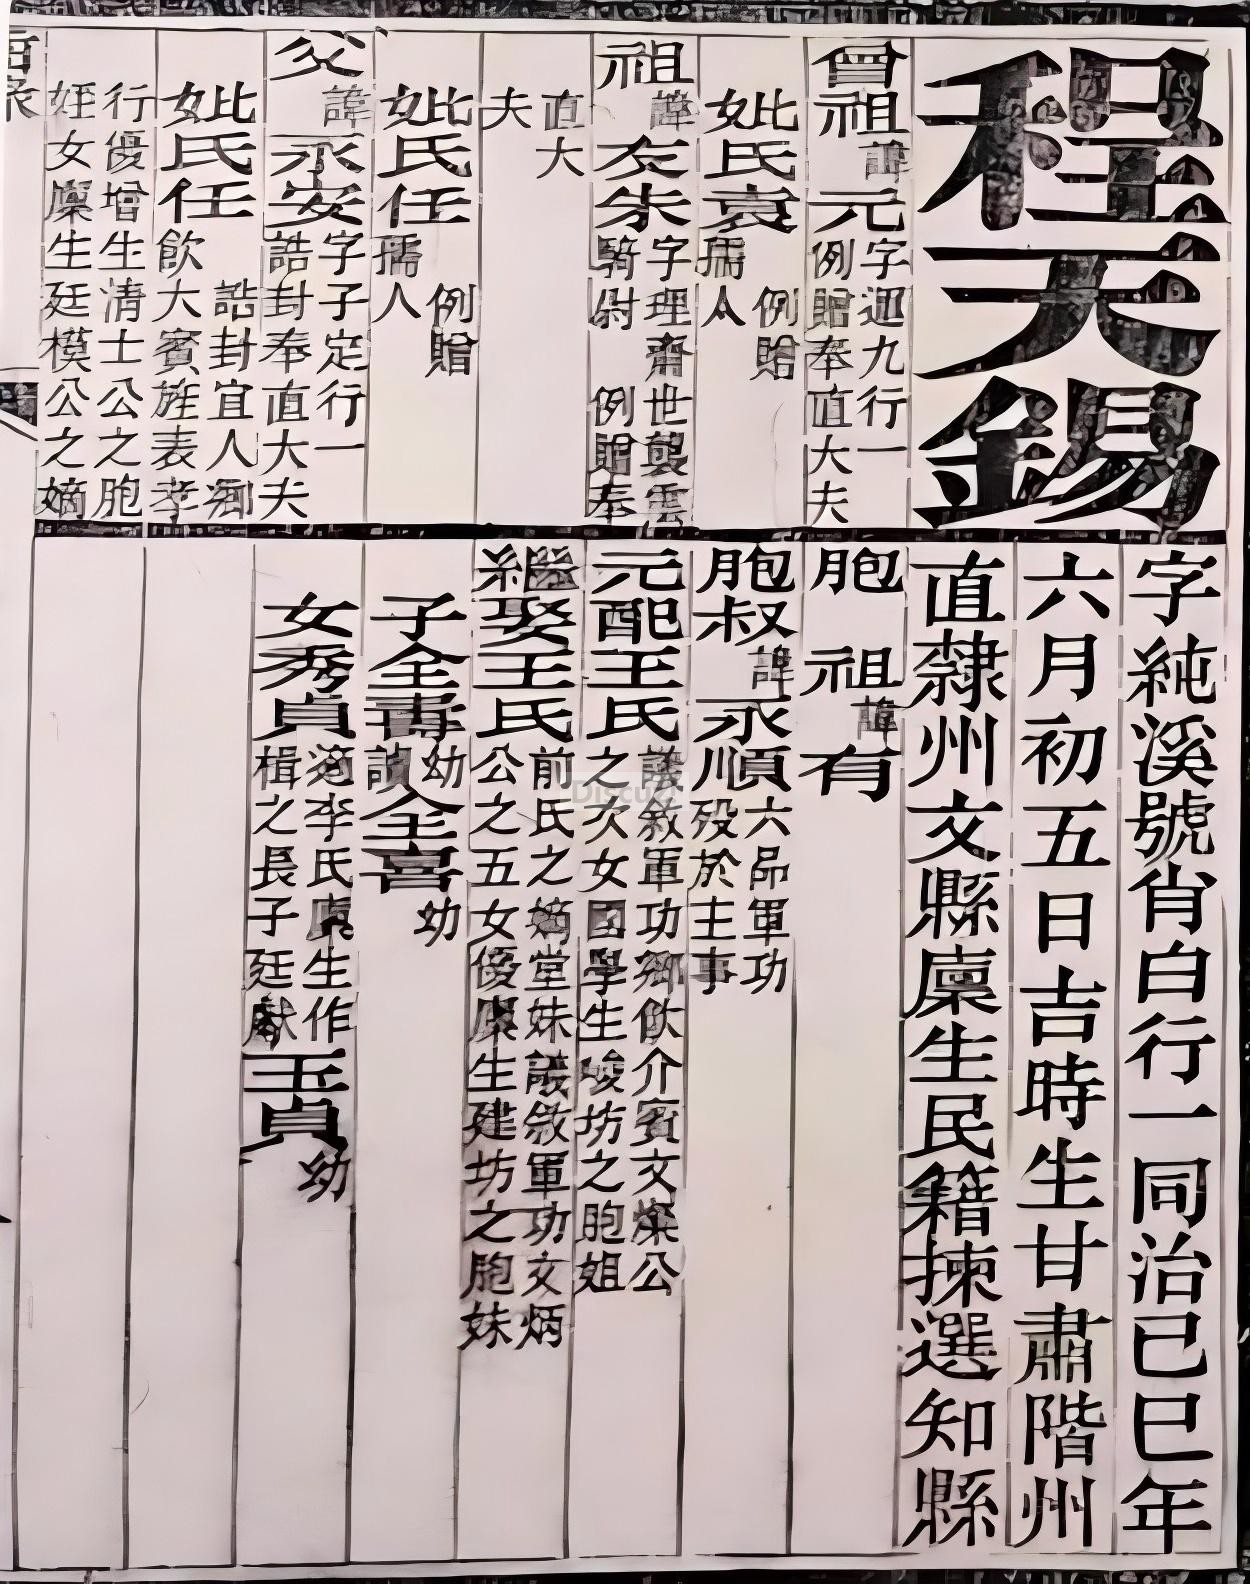 程天錫
字純溪號肖白行一同治己巳年
六月初五日吉時生甘肅階州
直隸州文縣廩生民籍揀選知縣
曾祖諱元字迴九行一例贈奉直大夫
妣氏袁例贈孺人
祖諱友朱字理齋世襲雲騎尉例贈奉
直大夫
妣氏任例贈孺人
父諱永安字子定行一誥封奉直大夫
妣氏任誥封宜人鄉飲大賓旌表孝
行優增生清士公之胞姪女廩生廷模公之嫡
胞祖諱有
胞叔諱永順六品軍功歿於主事
元配王氏議敘軍功鄉飲介賓文燦公之次女國學生峻坊之胞姐
繼娶王氏前氏之嫡堂妹議敘軍功文炳公之五女優廩生建坊之胞妹
子全壽幼讀全喜幼
女秀貞適李氏貢生作楫之長子廷獻玉貞幼